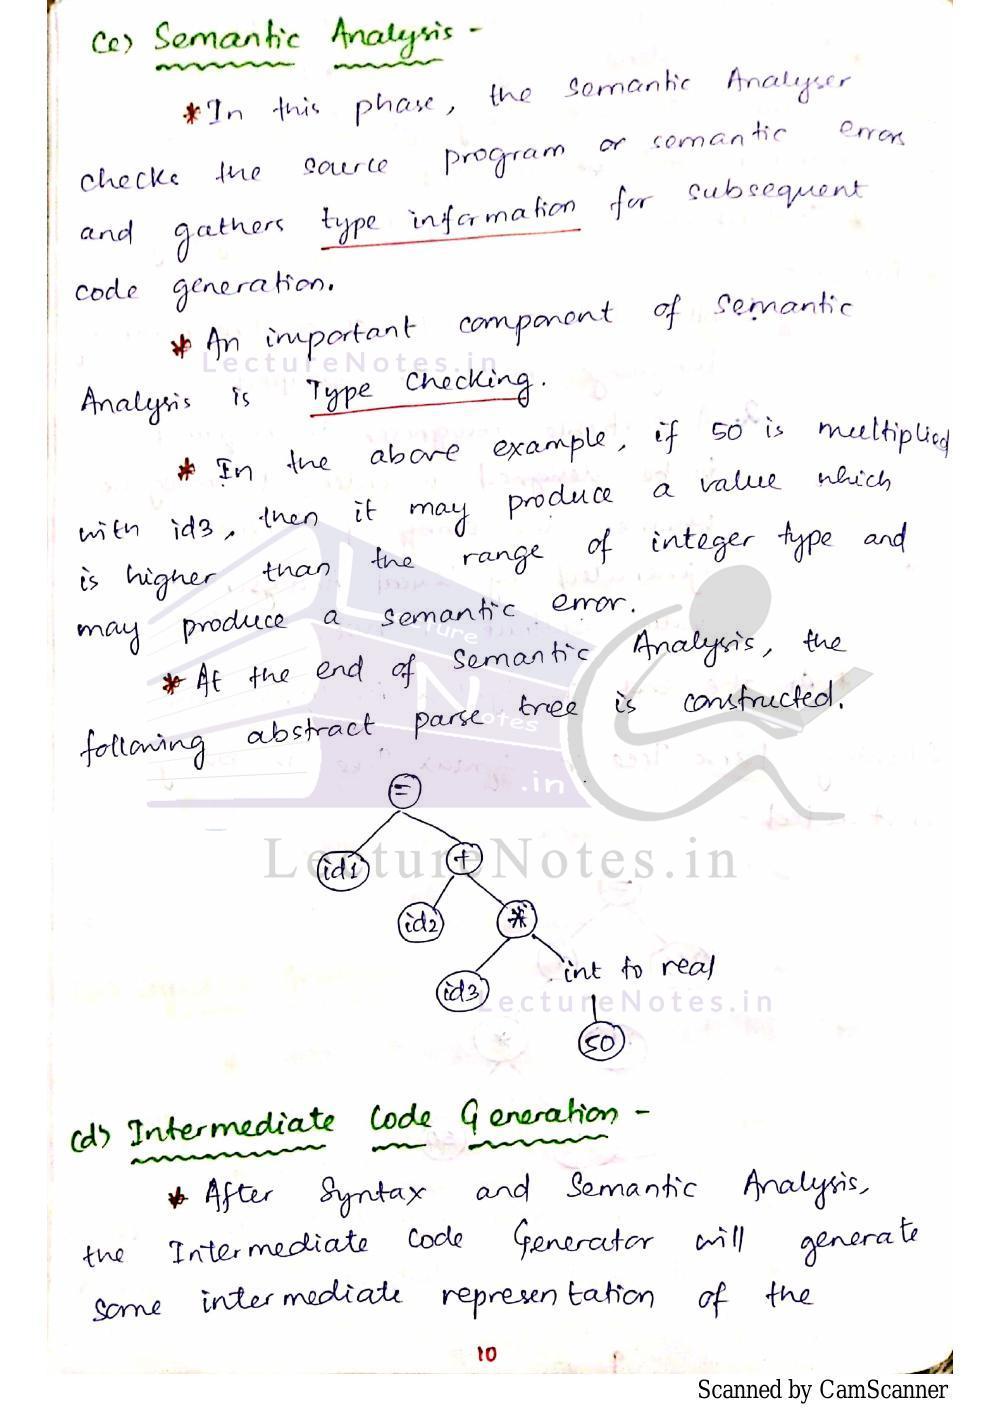 (c) Semantic Analysis -
* In this phase, the semantic Analyser
checks the source program or semantic errors
and gathers type information for subsequent
code generation.
* An important component of Semantic
LectureNotes.in
Analysis is Type Checking.
* In the above example, if 50 is multiplied
with id3, then it may produce a value which
is higher than the range of integer type and
may produce a semantic error.
Lecture
* At the end of Semantic Analysis, the
Notes
following abstract parse tree is constructed.
.in
=
LectureNotes.in
id1 +
id2 *
int to real
id3
LectureNotes.in
50
(d) Intermediate Code Generation -
* After Syntax and Semantic Analysis,
the Intermediate Code Generator will generate
some intermediate representation of the
10
Scanned by CamScanner